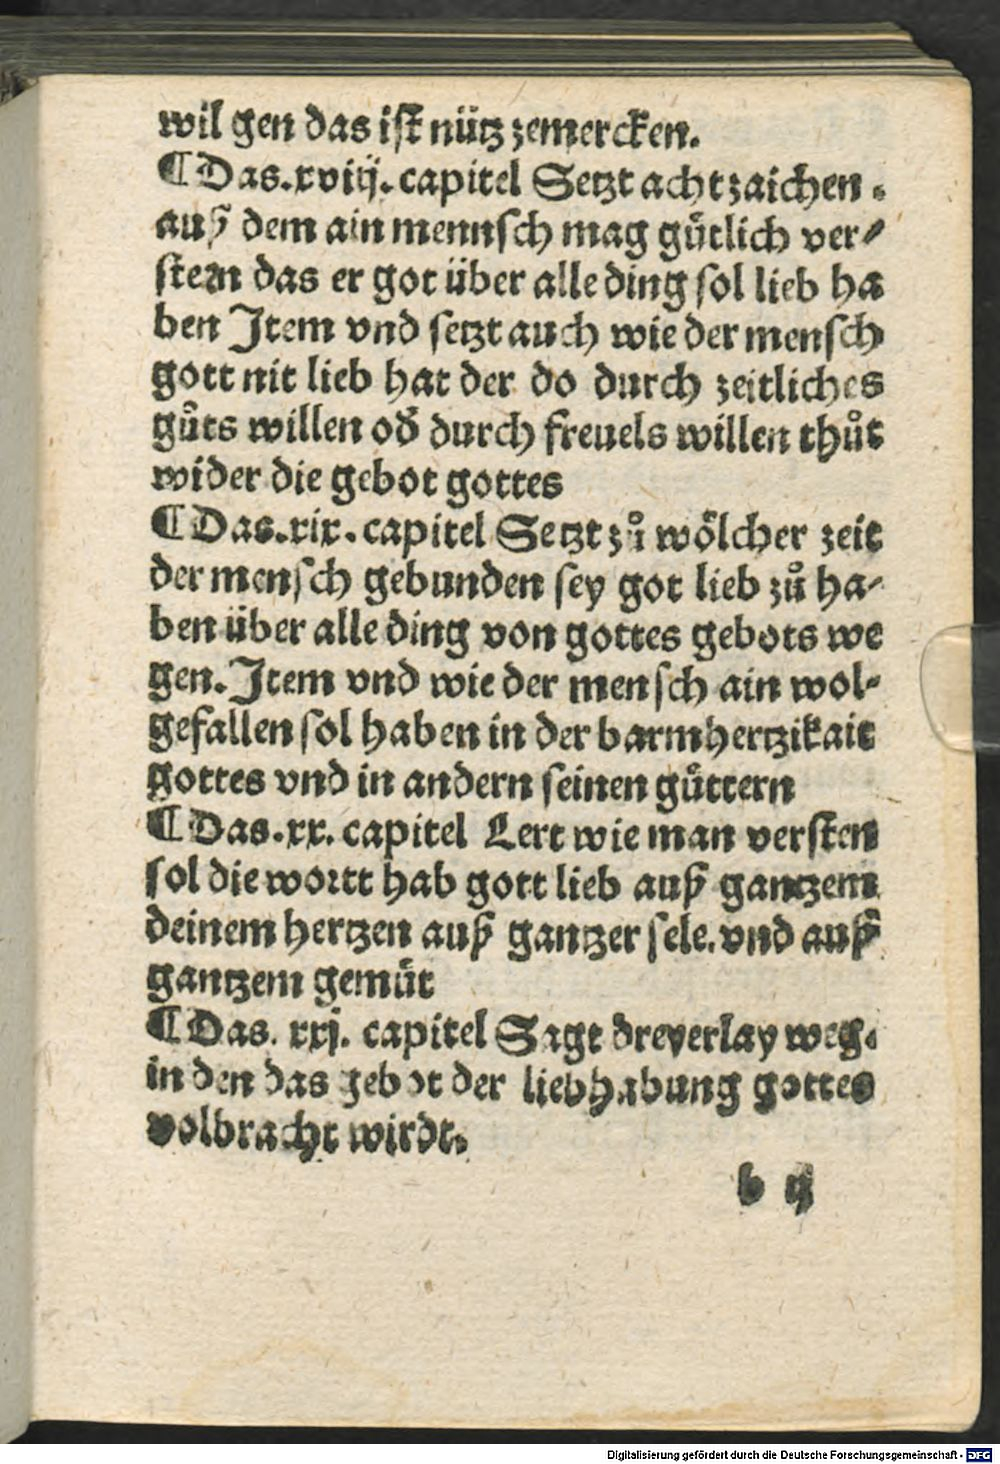 wil gen das iſt nütz zemercken.
¶Das.xviij.capitel Setzt acht zaichen.
auß dem ain mennſch mag gůtlich ver⸗
ſten das er got über alle ding ſol lieb ha
ben Item vnd ſetzt auch wie der menſch
gott nit lieb hat der do durch zeitliches
gůts willen oð durch freuels willen thůt
wider die gebot gottes
¶Das.xix.capitel Setzt zů woͤlcher zeit
der menſch gebunden ſey got lieb zů ha⸗
ben über alle ding von gottes gebots we
gen. Item vnd wie der menſch ain wol⸗
gefallen ſol haben in der barmhertzikait
gottes vnd in andern ſeinen gůttern
¶Das.xx. capitel Lert wie man verſten
ſol die wortt hab gott lieb auß gantzem
deinem hertzen auß gantzer ſele.vnd auß
gantzem gemüt
¶Das. xxj. capitel Sagt dreyerlay weg.
in den das gebot der liebhabung gottes
volbracht wirdt.
b ij
Digitalisierung gefördert durch die Deutsche Forschungsgemeinschaft - DFG